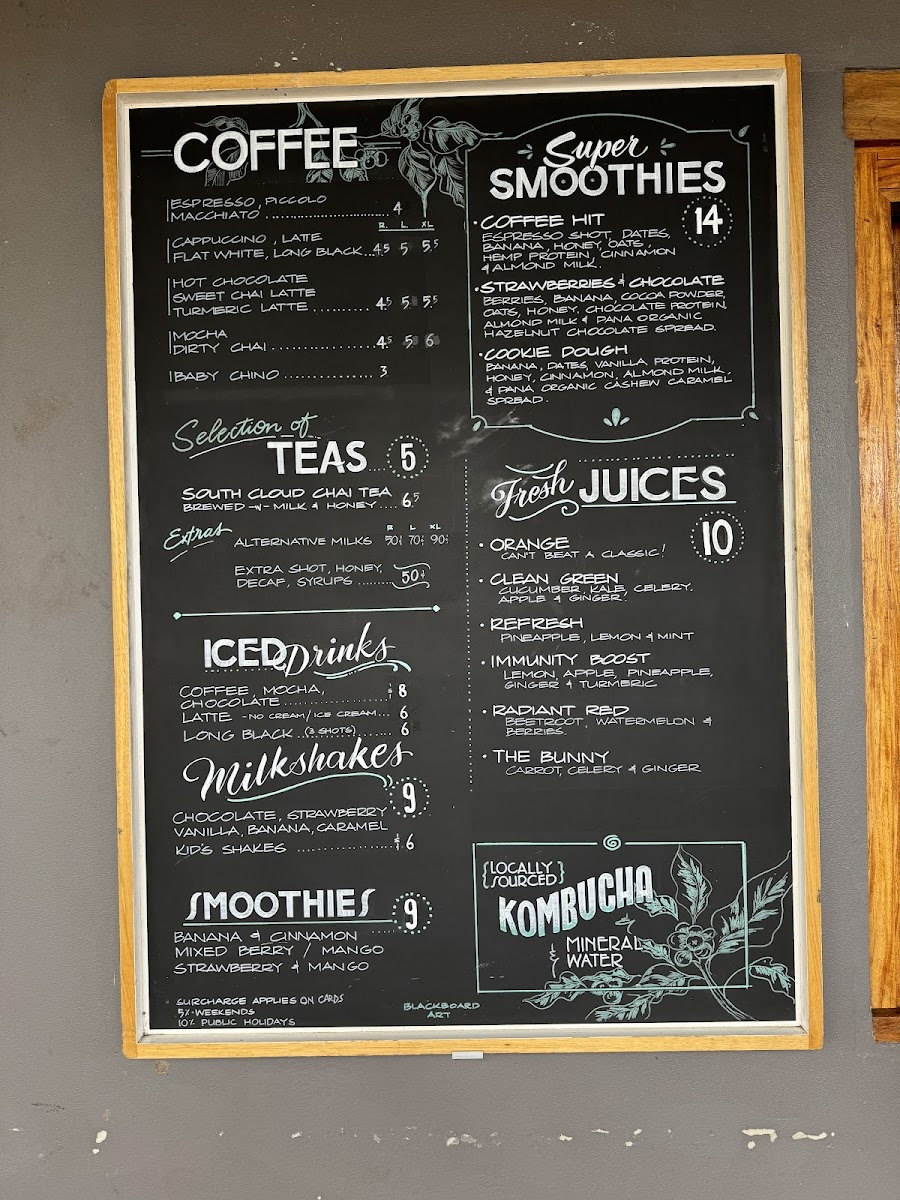 COFFEE
ESPRESSO, PICCOLO
MACCHIATO .............................. 4
R. L. XL
CAPPUCCINO, LATTE
FLAT WHITE, LONG BLACK... 4.5 5 5.5
HOT CHOCOLATE
SWEET CHAI LATTE
TURMERIC LATTE .......... 4.5 5 5.5
MOCHA
DIRTY CHAI .................. 4.5 5 6
BABY CHINO ............... 3
Selection of
TEAS 5
SOUTH CLOUD CHAI TEA
BREWED -W- MILK & HONEY .... 6.5
R L XL
Extras ALTERNATIVE MILKS 50¢ 70¢ 90¢
EXTRA SHOT, HONEY,
DECAF, SYRUPS ........ 50¢
ICED Drinks
COFFEE, MOCHA,
CHOCOLATE .................. $8
LATTE -NO CREAM/ICE CREAM... 6
LONG BLACK .(3 SHOTS)........ 6
Milkshakes
9
CHOCOLATE, STRAWBERRY
VANILLA, BANANA, CARAMEL
KID'S SHAKES .................. $6
SMOOTHIES 9
BANANA & CINNAMON
MIXED BERRY / MANGO
STRAWBERRY & MANGO
SURCHARGE APPLIES ON CARDS
5%-WEEKENDS
10% PUBLIC HOLIDAYS
BLACKBOARD
ART
Super
SMOOTHIES
14
• COFFEE HIT
ESPRESSO SHOT, DATES,
BANANA, HONEY, OATS,
HEMP PROTEIN, CINNAMON
& ALMOND MILK.
• STRAWBERRIES & CHOCOLATE
BERRIES, BANANA, COCOA POWDER,
OATS, HONEY, CHOCOLATE PROTEIN,
ALMOND MILK & PANA ORGANIC
HAZELNUT CHOCOLATE SPREAD.
• COOKIE DOUGH
BANANA, DATES, VANILLA PROTEIN,
HONEY, CINNAMON, ALMOND MILK,
& PANA ORGANIC CASHEW CARAMEL
SPREAD.
Fresh JUICES
10
• ORANGE
CAN'T BEAT A CLASSIC!
• CLEAN GREEN
CUCUMBER, KALE, CELERY.
APPLE & GINGER.
• REFRESH
PINEAPPLE, LEMON & MINT
• IMMUNITY BOOST
LEMON, APPLE, PINEAPPLE,
GINGER & TURMERIC
• RADIANT RED
BEETROOT, WATERMELON &
BERRIES.
• THE BUNNY
CARROT, CELERY & GINGER
{LOCALLY
SOURCED}
KOMBUCHA
& MINERAL
WATER